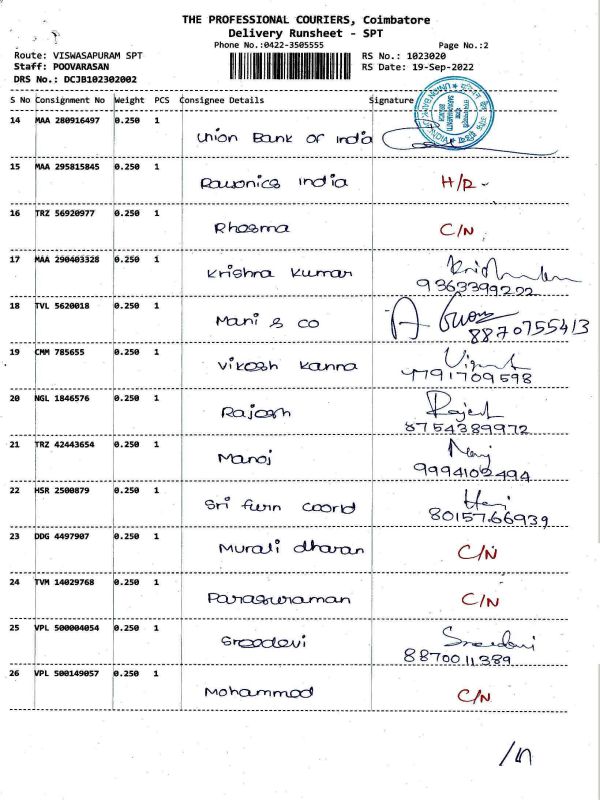 THE PROFESSIONAL COURIERS, Coimbatore
Delivery Runsheet - SPT
Phone No.:0422-3505555 Page No.:2
Route: VISWASAPURAM SPT RS No.: 1023020
Staff: POOVARASAN RS Date: 19-Sep-2022
DRS No.: DCJB102302002
S No Consignment No Weight PCS Consignee Details Signature
14 MAA 280916497 0.250 1 Union Bank of India
15 MAA 295815845 0.250 1 Rawonics India H/R-
16 TRZ 56920977 0.250 1 Rhosma C/N
17 MAA 290403328 0.250 1 Krishra Kumar
9363399222
18 TVL 5620018 0.250 1 Mani & co
8870755413
19 CMM 785655 0.250 1 Vikosh Kanna
7791709598
20 NGL 1846576 0.250 1 Rajesh Rajesh
8754389972
21 TRZ 42443654 0.250 1 Manoj
9994102494
22 HSR 2500879 0.250 1 Sri furn coord Hari
8015766939
23 DDG 4497907 0.250 1 Murali dharan C/N
24 TVM 14029768 0.250 1 Parasuraman C/N
25 VPL 500004054 0.250 1 Sreedevi Sreedevi
8870011389
26 VPL 500149057 0.250 1 Mohammod C/N